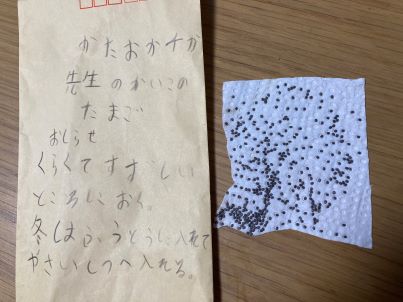 かたおかチカ
先生のかいこの
たまご
おしらせ
くらくてすずしい
ところにおく。
冬はふうとうに入れて
やさいしつへ入れる。